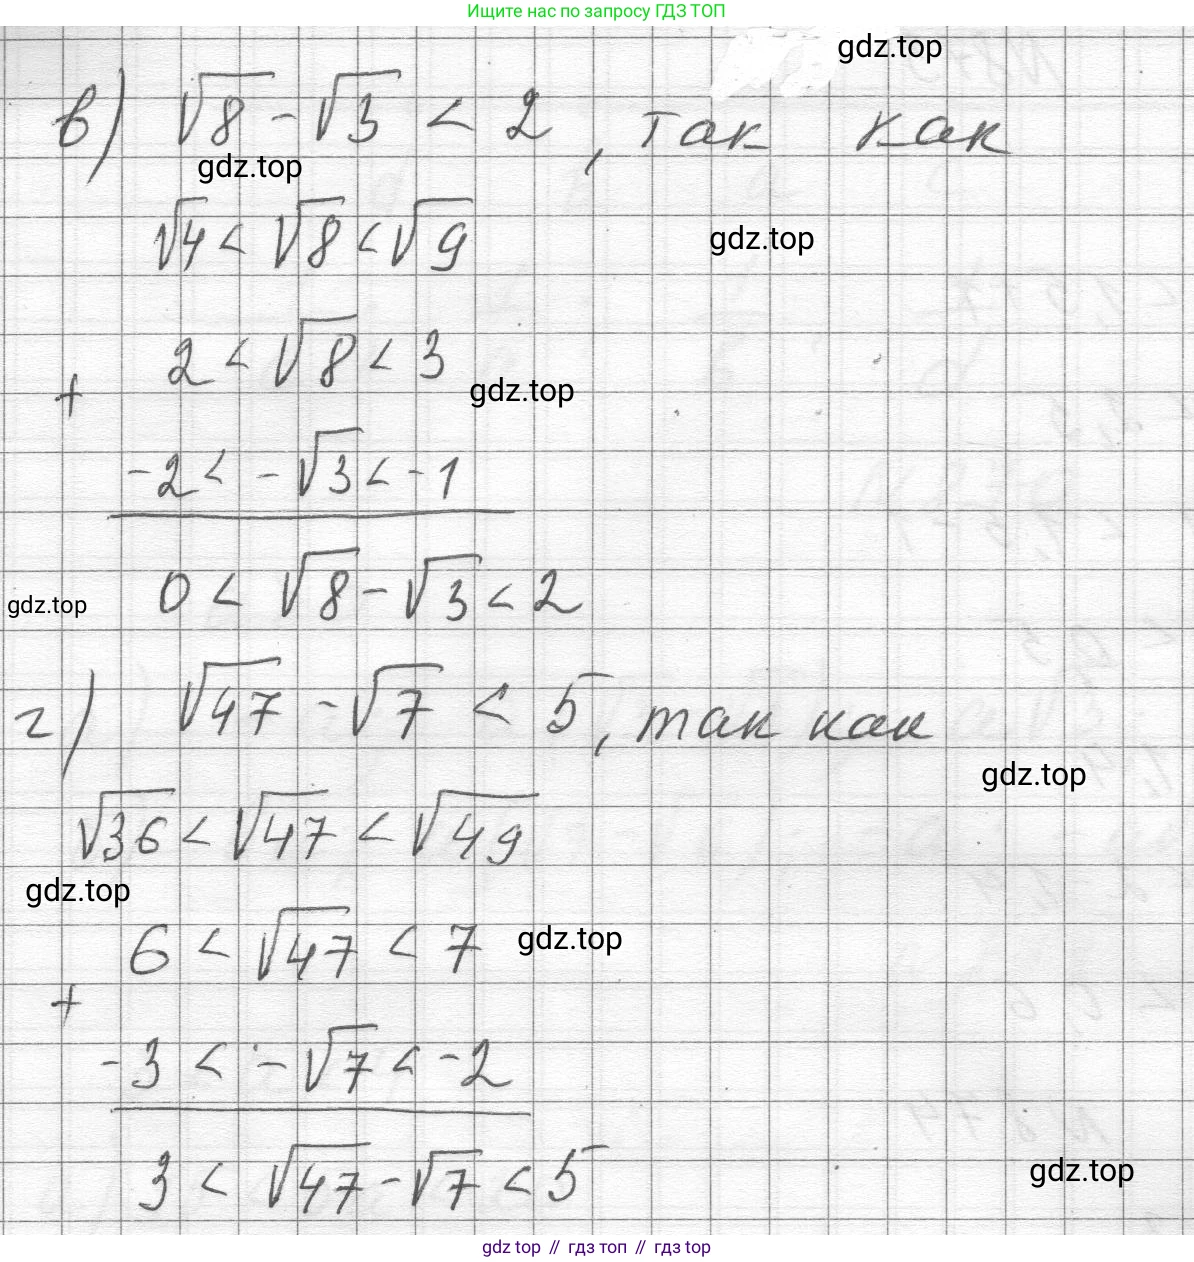 Ищите нас по запросу ГДЗ ТОП
gdz.top
в) √8 - √3 < 2, так как
gdz.top
√4 < √8 < √9
gdz.top
2 < √8 < 3
+
gdz.top
-2 < -√3 < -1
0 < √8 - √3 < 2
gdz.top
г) √47 - √7 < 5, так как
gdz.top
√36 < √47 < √49
gdz.top
6 < √47 < 7
gdz.top
+
-3 < -√7 < -2
3 < √47 - √7 < 5
gdz.top
gdz top // гдз топ // gdz top